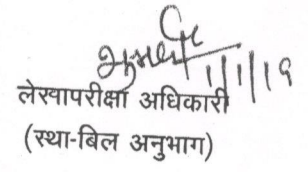 1/1/19
लेखापरीक्षा अधिकारी
(स्था-बिल अनुभाग)